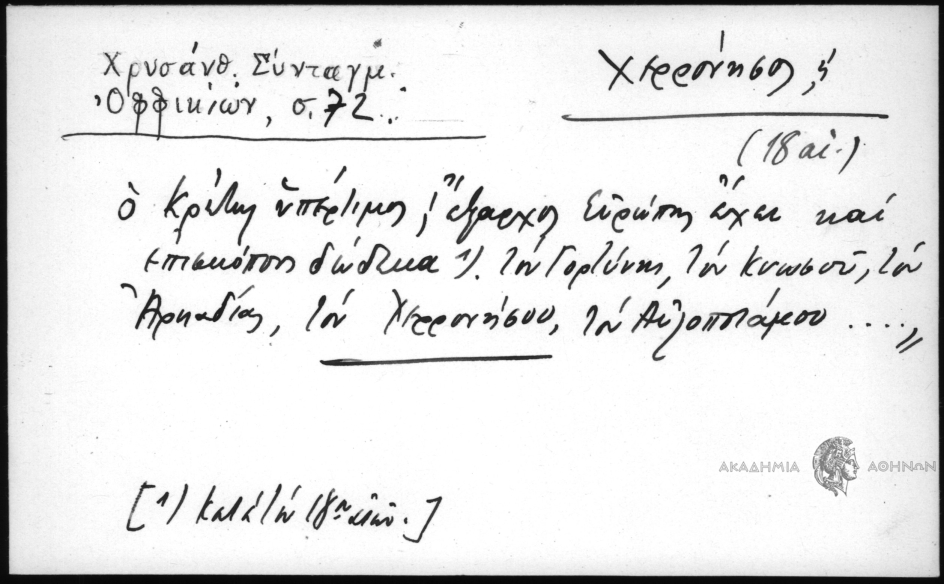 Χρυσάνθ. Σύνταγμ.
Ὀφφικιών, σ. 72.
Χερρόνησος, ἡ
(18 αἰ.)
ὁ Κρήτης ὑπέρτιμος, ἔξαρχος Εὐρώπης ἔχει καί
ἐπισκόπους δώδεκα 1). τόν Γορτύνης, τόν Κνωσοῦ, τόν
Ἀρκαδίας, τόν Χερρονήσου, τόν Αὐλοποτάμου ....,,
ΑΚΑΔΗΜΙΑ ΑΘΗΝΩΝ
[1) κατά τόν 18ον αἰῶν.]